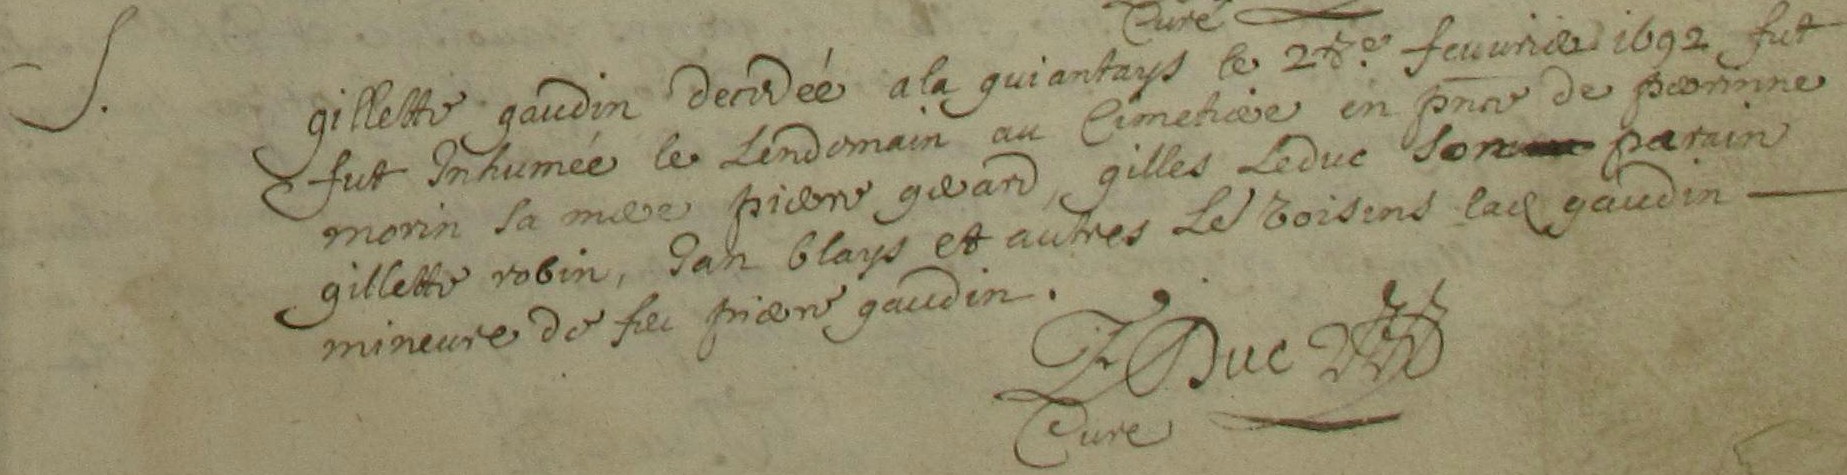 Curé
S.
gillette gaudin decedée a la guiantays le 2e feuurier 1692 fut
fut Inhumée le Lendemain au Cimetiere en pnce de perrinne
morin sa mere pierre gerard, gilles Leduc son parain
gillette robin, Jan blays et autres Le Voisins lad gaudin
mineure de feu pierre gaudin.
Duc
Curé